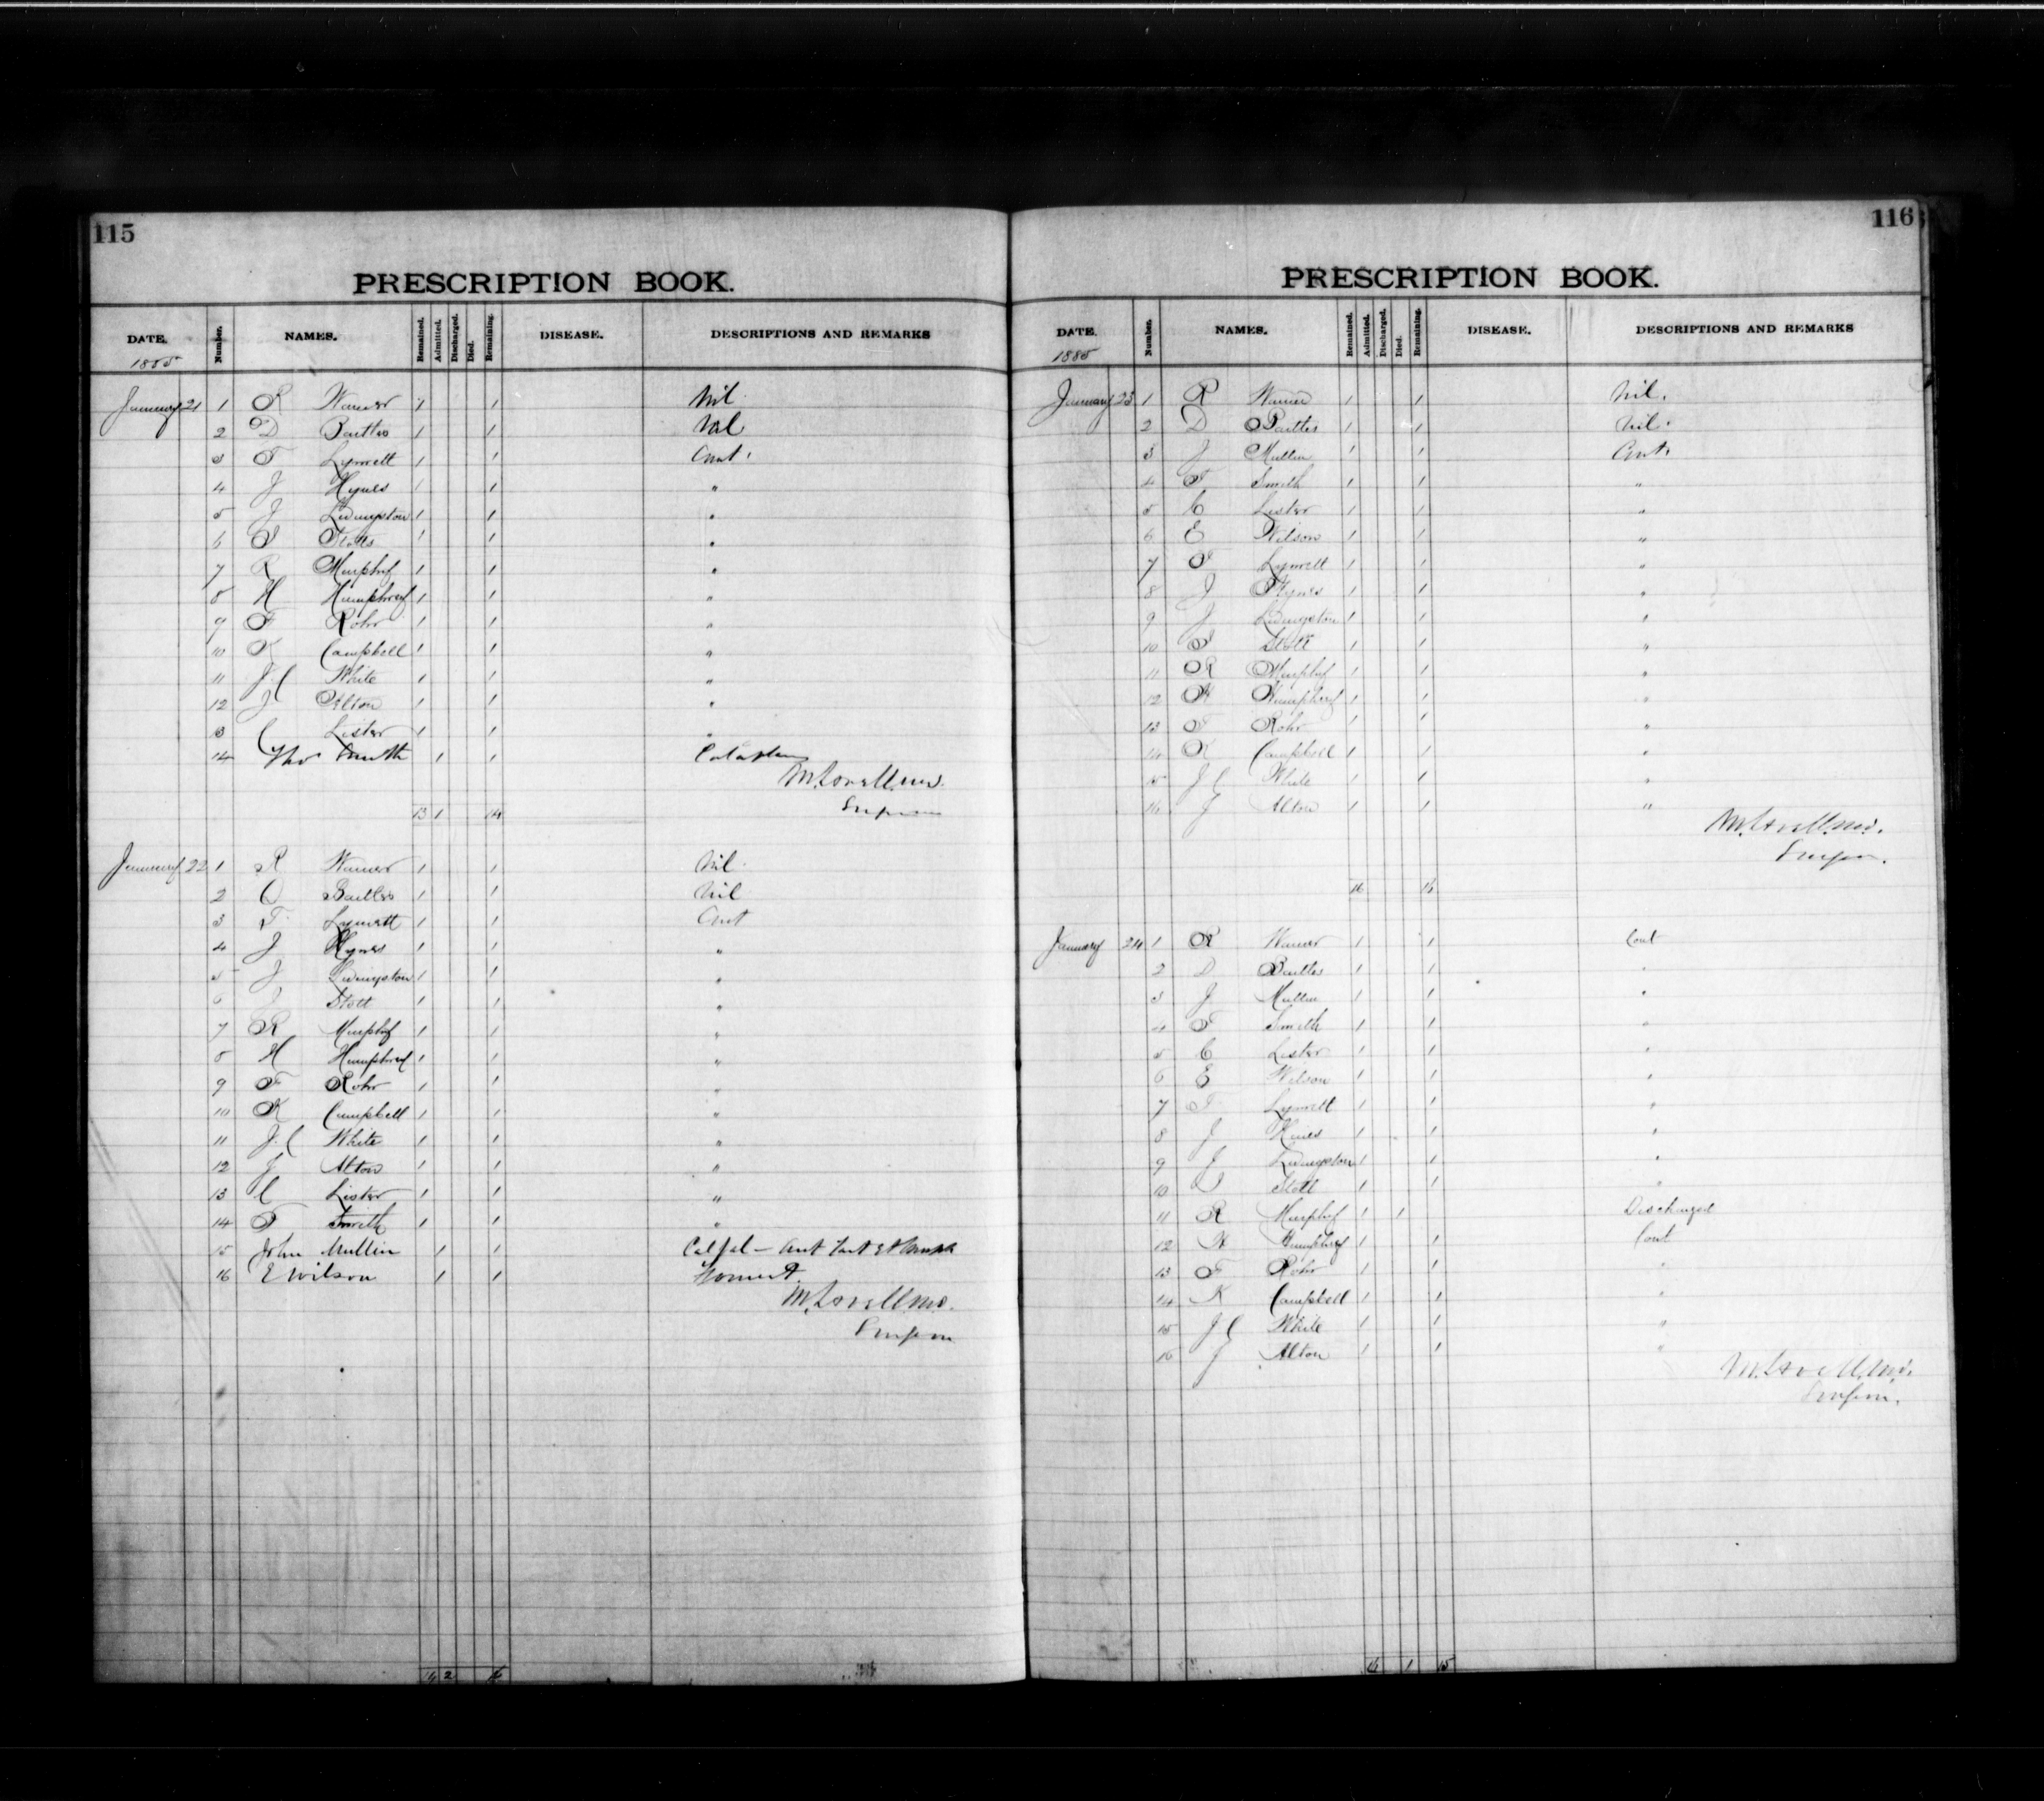 115
PRESCRIPTION BOOK.
DATE. Number. NAMES. Remained. Admitted. Discharged. Died. Remaining. DISEASE. DESCRIPTIONS AND REMARKS
1885
January 21 1 R Warner 1 1 Nil.
2 D Bartles 1 1 Nil
3 T Lynvett 1 1 Cont.
4 J Hynes 1 1 "
5 J Livingston 1 1 "
6 Stotts 1 1 "
7 R Murphy 1 1 "
8 H Humphrey 1 1 "
9 F Rohr 1 1 "
10 K Campbell 1 1 "
11 J.C White 1 1 "
12 J Alton 1 1 "
13 C Lister 1 1 "
14 Thos Smith 1 1 Cataplasm
M. Lovell. MD.
Surgeon
13 1 14
January 22 1 R Warner 1 1 Nil.
2 D Bartles 1 1 Nil
3 T. Lynvett 1 1 Cont
4 J Hynes 1 1 "
5 J Livingston 1 1 "
6 Stott 1 1 "
7 R Murphy 1 1 "
8 H Humphrey 1 1 "
9 F Rohr 1 1 "
10 K Campbell 1 1 "
11 J.C White 1 1 "
12 J Alton 1 1 "
13 C Lister 1 1 "
14 T Smith 1 1 "
15 John Mullin 1 1
16 E Wilson 1 1 Foment.
M. Lovell. MD.
Surgeon
14 2 16
116
PRESCRIPTION BOOK.
DATE. Number. NAMES. Remained. Admitted. Discharged. Died. Remaining. DISEASE. DESCRIPTIONS AND REMARKS
1885
January 23 1 R Warner 1 1 Nil.
2 D Bartles 1 1 Nil.
3 J Mullin 1 1 Cont.
4 T Smith 1 1 "
5 C Lister 1 1 "
6 E Wilson 1 1 "
7 T Lynvett 1 1 "
8 J Hynes 1 1 "
9 J Livingston 1 1 "
10 Stott 1 1 "
11 R Murphy 1 1 "
12 H Humphrey 1 1 "
13 F Rohr 1 1 "
14 K Campbell 1 1 "
15 J C White 1 1 "
16 J Alton 1 1 "
M. Lovell. MD.
Surgeon.
16 16
January 24 1 R Warner 1 1 Cont
2 D Bartles 1 1 "
3 J Mullin 1 1 "
4 T Smith 1 1 "
5 C Lister 1 1 "
6 E Wilson 1 1 "
7 T Lynvett 1 1 "
8 J Hines 1 1 "
9 J Livingston 1 1 "
10 Stott 1 1 "
11 R Murphy 1 1 Discharged
12 H Humphrey 1 1 Cont
13 F Rohr 1 1 "
14 K Campbell 1 1 "
15 J C White 1 1 "
16 J Alton 1 1 "
M. Lovell. MD.
Surgeon.
16 1 15